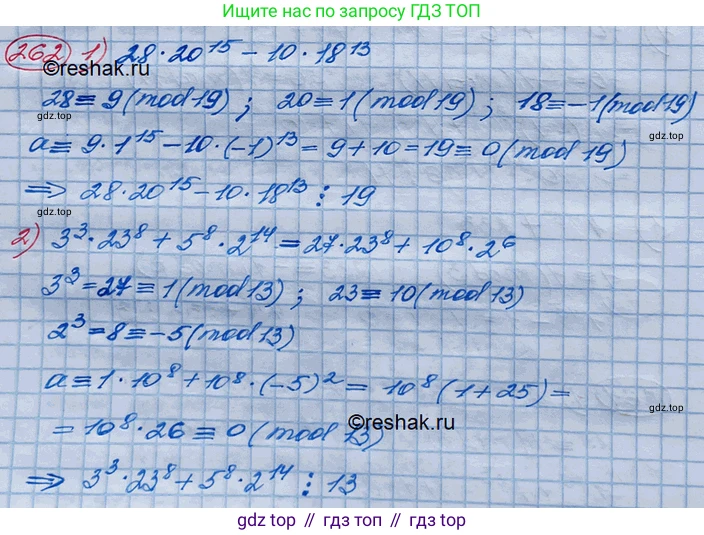 Ищите нас по запросу ГДЗ ТОП
262 1) 28·20¹⁵ − 10·18¹³
©reshak.ru
28 ≡ 9 (mod 19) ; 20 ≡ 1 (mod 19) ; 18 ≡ −1 (mod 19)
gdz.top
a ≡ 9·1¹⁵ − 10·(−1)¹³ = 9 + 10 = 19 ≡ 0 (mod 19)
gdz.top
⇒ 28·20¹⁵ − 10·18¹³ ⋮ 19
gdz.top
2) 3³·23⁸ + 5⁸·2¹⁴ = 27·23⁸ + 10⁸·2⁶
3³ = 27 ≡ 1 (mod 13) ; 23 ≡ 10 (mod 13)
gdz.top
2³ = 8 ≡ −5 (mod 13)
a ≡ 1·10⁸ + 10⁸·(−5)² = 10⁸(1 + 25) =
gdz.top
= 10⁸·26 ≡ 0 (mod 13)
©reshak.ru
⇒ 3³·23⁸ + 5⁸·2¹⁴ ⋮ 13
gdz.top
gdz.top // гдз топ // гдз.топ